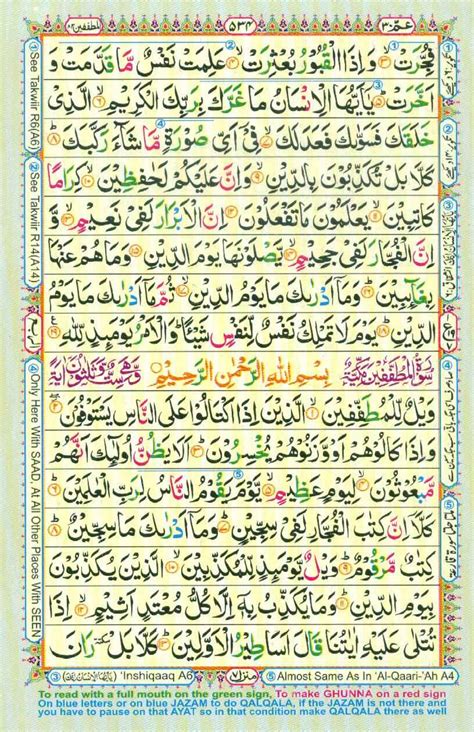 عمّ ٣٠ ٥٣٤ المطففين ٨٣
فُجِّرَتْ ۝٣ وَاِذَا الْقُبُوْرُ بُعْثِرَتْ ۝٤ عَلِمَتْ نَفْسٌ مَّا قَدَّمَتْ وَ
اَخَّرَتْ ۝٥ يٰٓاَيُّهَا الْاِنْسَانُ مَا غَرَّكَ بِرَبِّكَ الْكَرِيْمِ ۝٦ الَّذِيْ
خَلَقَكَ فَسَوّٰىكَ فَعَدَلَكَ ۝٧ فِيْٓ اَيِّ صُوْرَةٍ مَّا شَآءَ رَكَّبَكَ ۝٨
كَلَّا بَلْ تُكَذِّبُوْنَ بِالدِّيْنِ ۝٩ وَاِنَّ عَلَيْكُمْ لَحٰفِظِيْنَ ۝١٠ كِرَامًا
كَاتِبِيْنَ ۝١١ يَعْلَمُوْنَ مَا تَفْعَلُوْنَ ۝١٢ اِنَّ الْاَبْرَارَ لَفِيْ نَعِيْمٍ ۝١٣ وَ
اِنَّ الْفُجَّارَ لَفِيْ جَحِيْمٍ ۝١٤ يَّصْلَوْنَهَا يَوْمَ الدِّيْنِ ۝١٥ وَمَا هُمْ عَنْهَا
بِغَآئِبِيْنَ ۝١٦ وَمَآ اَدْرٰىكَ مَا يَوْمُ الدِّيْنِ ۝١٧ ثُمَّ مَآ اَدْرٰىكَ مَا يَوْمُ
الدِّيْنِ ۝١٨ يَوْمَ لَا تَمْلِكُ نَفْسٌ لِّنَفْسٍ شَيْـًٔا وَالْاَمْرُ يَوْمَئِذٍ لِّلّٰهِ ۝١٩
سُوْرَةُ الْمُطَفِّفِيْنَ مَكِّيَّةٌ بِسْمِ اللّٰهِ الرَّحْمٰنِ الرَّحِيْمِ وَّهِيَ سِتٌّ وَّثَلٰثُوْنَ اٰيَةً
وَيْلٌ لِّلْمُطَفِّفِيْنَ ۝١ الَّذِيْنَ اِذَا اكْتَالُوْا عَلَى النَّاسِ يَسْتَوْفُوْنَ ۝٢
وَاِذَا كَالُوْهُمْ اَوْ وَّزَنُوْهُمْ يُخْسِرُوْنَ ۝٣ اَلَا يَظُنُّ اُولٰٓئِكَ اَنَّهُمْ
مَّبْعُوْثُوْنَ ۝٤ لِيَوْمٍ عَظِيْمٍ ۝٥ يَّوْمَ يَقُوْمُ النَّاسُ لِرَبِّ الْعٰلَمِيْنَ ۝٦
كَلَّآ اِنَّ كِتٰبَ الْفُجَّارِ لَفِيْ سِجِّيْنٍ ۝٧ وَمَآ اَدْرٰىكَ مَا سِجِّيْنٌ ۝٨
كِتٰبٌ مَّرْقُوْمٌ ۝٩ وَيْلٌ يَّوْمَئِذٍ لِّلْمُكَذِّبِيْنَ ۝١٠ الَّذِيْنَ يُكَذِّبُوْنَ
بِيَوْمِ الدِّيْنِ ۝١١ وَمَا يُكَذِّبُ بِهٖٓ اِلَّا كُلُّ مُعْتَدٍ اَثِيْمٍ ۝١٢ اِذَا
تُتْلٰى عَلَيْهِ اٰيٰتُنَا قَالَ اَسَاطِيْرُ الْاَوَّلِيْنَ ۝١٣ كَلَّا بَلْ رَانَ
① See Takwiir R6(A6)
② See Takwiir R14(A14)
④ Only Here With SAAD, At All Other Places With SEEN
③ 'Inshiqaaq A6 منزل ٧ ⑤ Almost Same As In 'Al-Qaari-'Ah A4
To read with a full mouth on the green sign, To make GHUNNA on a red sign
On blue letters or on blue JAZAM to do QALQALA, if the JAZAM is not there and
you have to pause on that AYAT so in that condition make QALQALA there as well